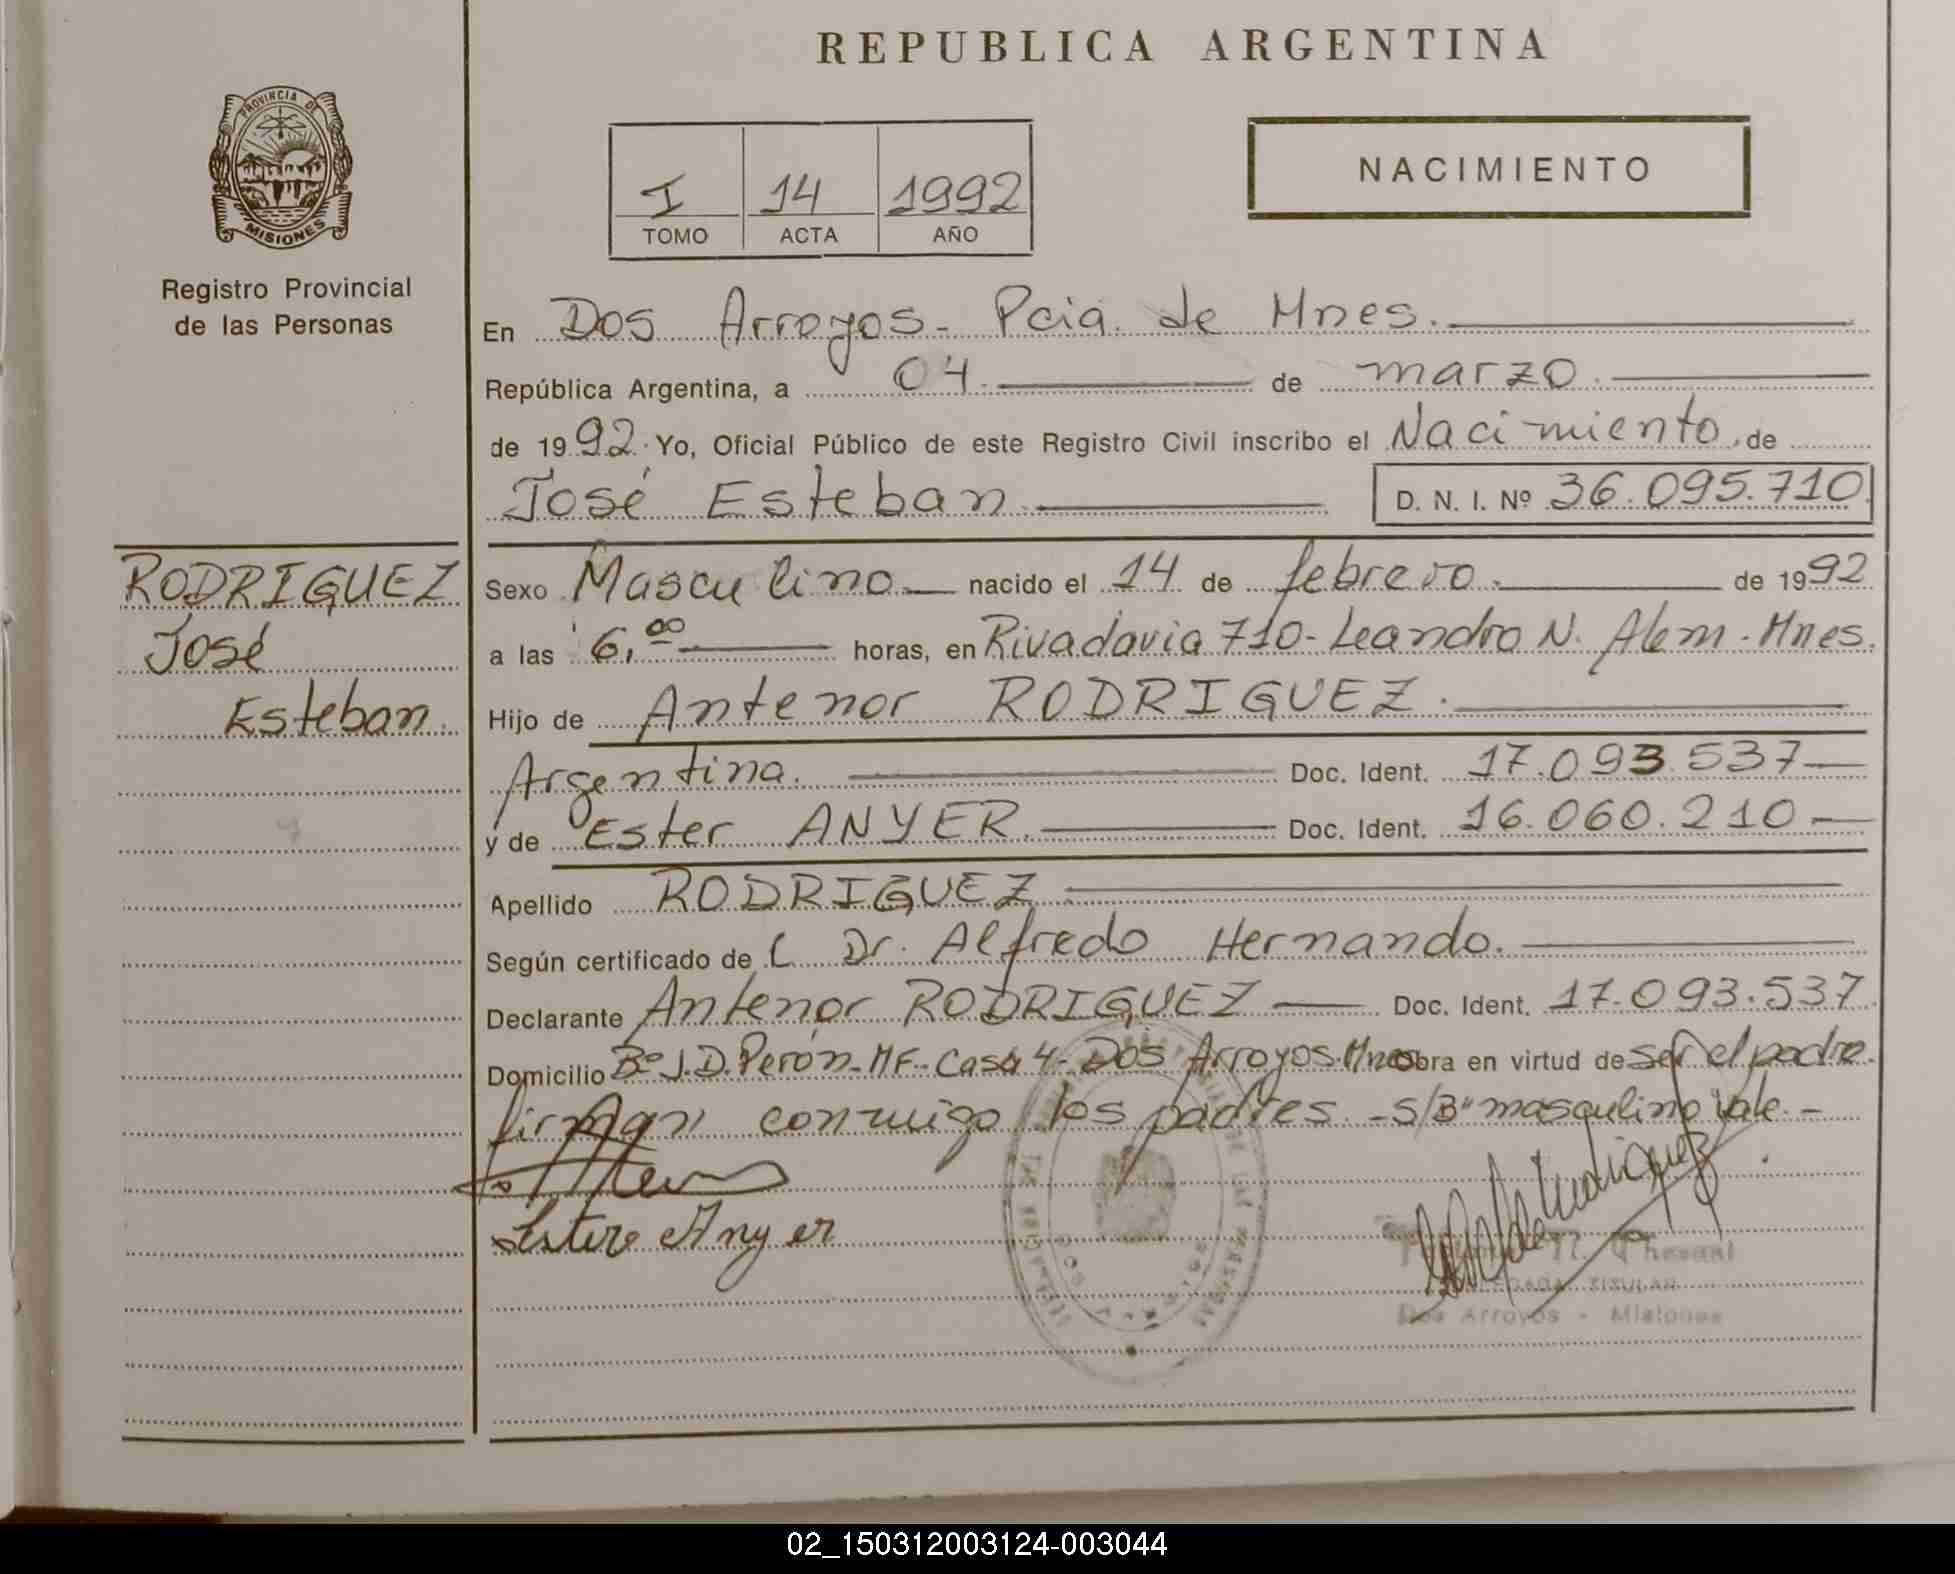 REPUBLICA ARGENTINA
PROVINCIA DE
MISIONES
Registro Provincial
de las Personas
I 14 1992
TOMO ACTA AÑO
NACIMIENTO
En Dos Arroyos- Pcia. de Mnes.
República Argentina, a 04. de marzo.
de 1992. Yo, Oficial Público de este Registro Civil inscribo el Nacimiento, de
José Esteban D. N. I. Nº 36.095.710
RODRIGUEZ
José
Esteban.
Sexo Masculino nacido el 14 de febrero. de 1992
a las 6,00 horas, en Rivadavia 710- Leandro N. Alem - Mnes.
Hijo de Antenor RODRIGUEZ.
Argentina. Doc. Ident. 17.093.537
y de Ester ANYER. Doc. Ident. 16.060.210
Apellido RODRIGUEZ
Según certificado de Dr. Alfredo Hernando.
Declarante Antenor RODRIGUEZ Doc. Ident. 17.093.537
Domicilio Bº J.D. Perón- MF- Casa 4- Dos Arroyos- Mnes obra en virtud de ser el padre.
firman conmigo los padres - S/Bº masculino vale. -
Ester Anyer
TITULAR
Dos Arroyos - Misiones
02_150312003124-003044